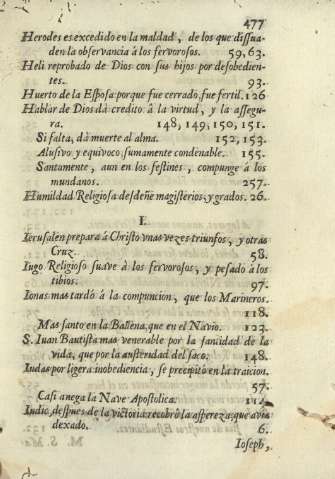 477
Herodes es excedido en la maldad, de los que dissua-
den la observancia á los fervorosos. 59,63.
Heli reprobado de Dios con sus hijos por desobedien-
tes. 93.
Huerto de la Esposa porque fue cerrado, fue fertil. 126
Hablar de Dios dà credito â la virtud, y la assegu-
ra. 148, 149, 150, 151.
Si falta, dà muerte al alma. 152, 153.
Alusivo y equivoco, sumamente condenable. 155.
Santamente, aun en los festines, compunge á los
mundanos. 257.
Humildad Religiosa desdeñe magisterios, y grados. 26.
I.
Ierusalen prepara â Christo vnas vezes triunfos, y otras
Cruz. 58.
Iugo Religioso suave à los fervorosos, y pesado à los
tibios. 97.
Ionas mas tardó á la compuncion, que los Marineros.
118.
Mas santo en la Ballena, que en el Navio. 123.
S. Iuan Bautista mas venerable por la santidad de la
vida, que por la austeridad del saco. 148.
Iudas por ligera inobediencia, se precipitò en la traicion.
57.
Casi anega la Nave Apostolica. 112.
Indio, despues de la victoria recobrò la aspereza que avia
dexado. 6.
Ioseph,